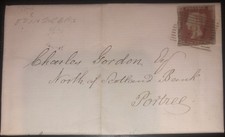 Charles Gordon, Esq
North of Scotland Bank
Portree